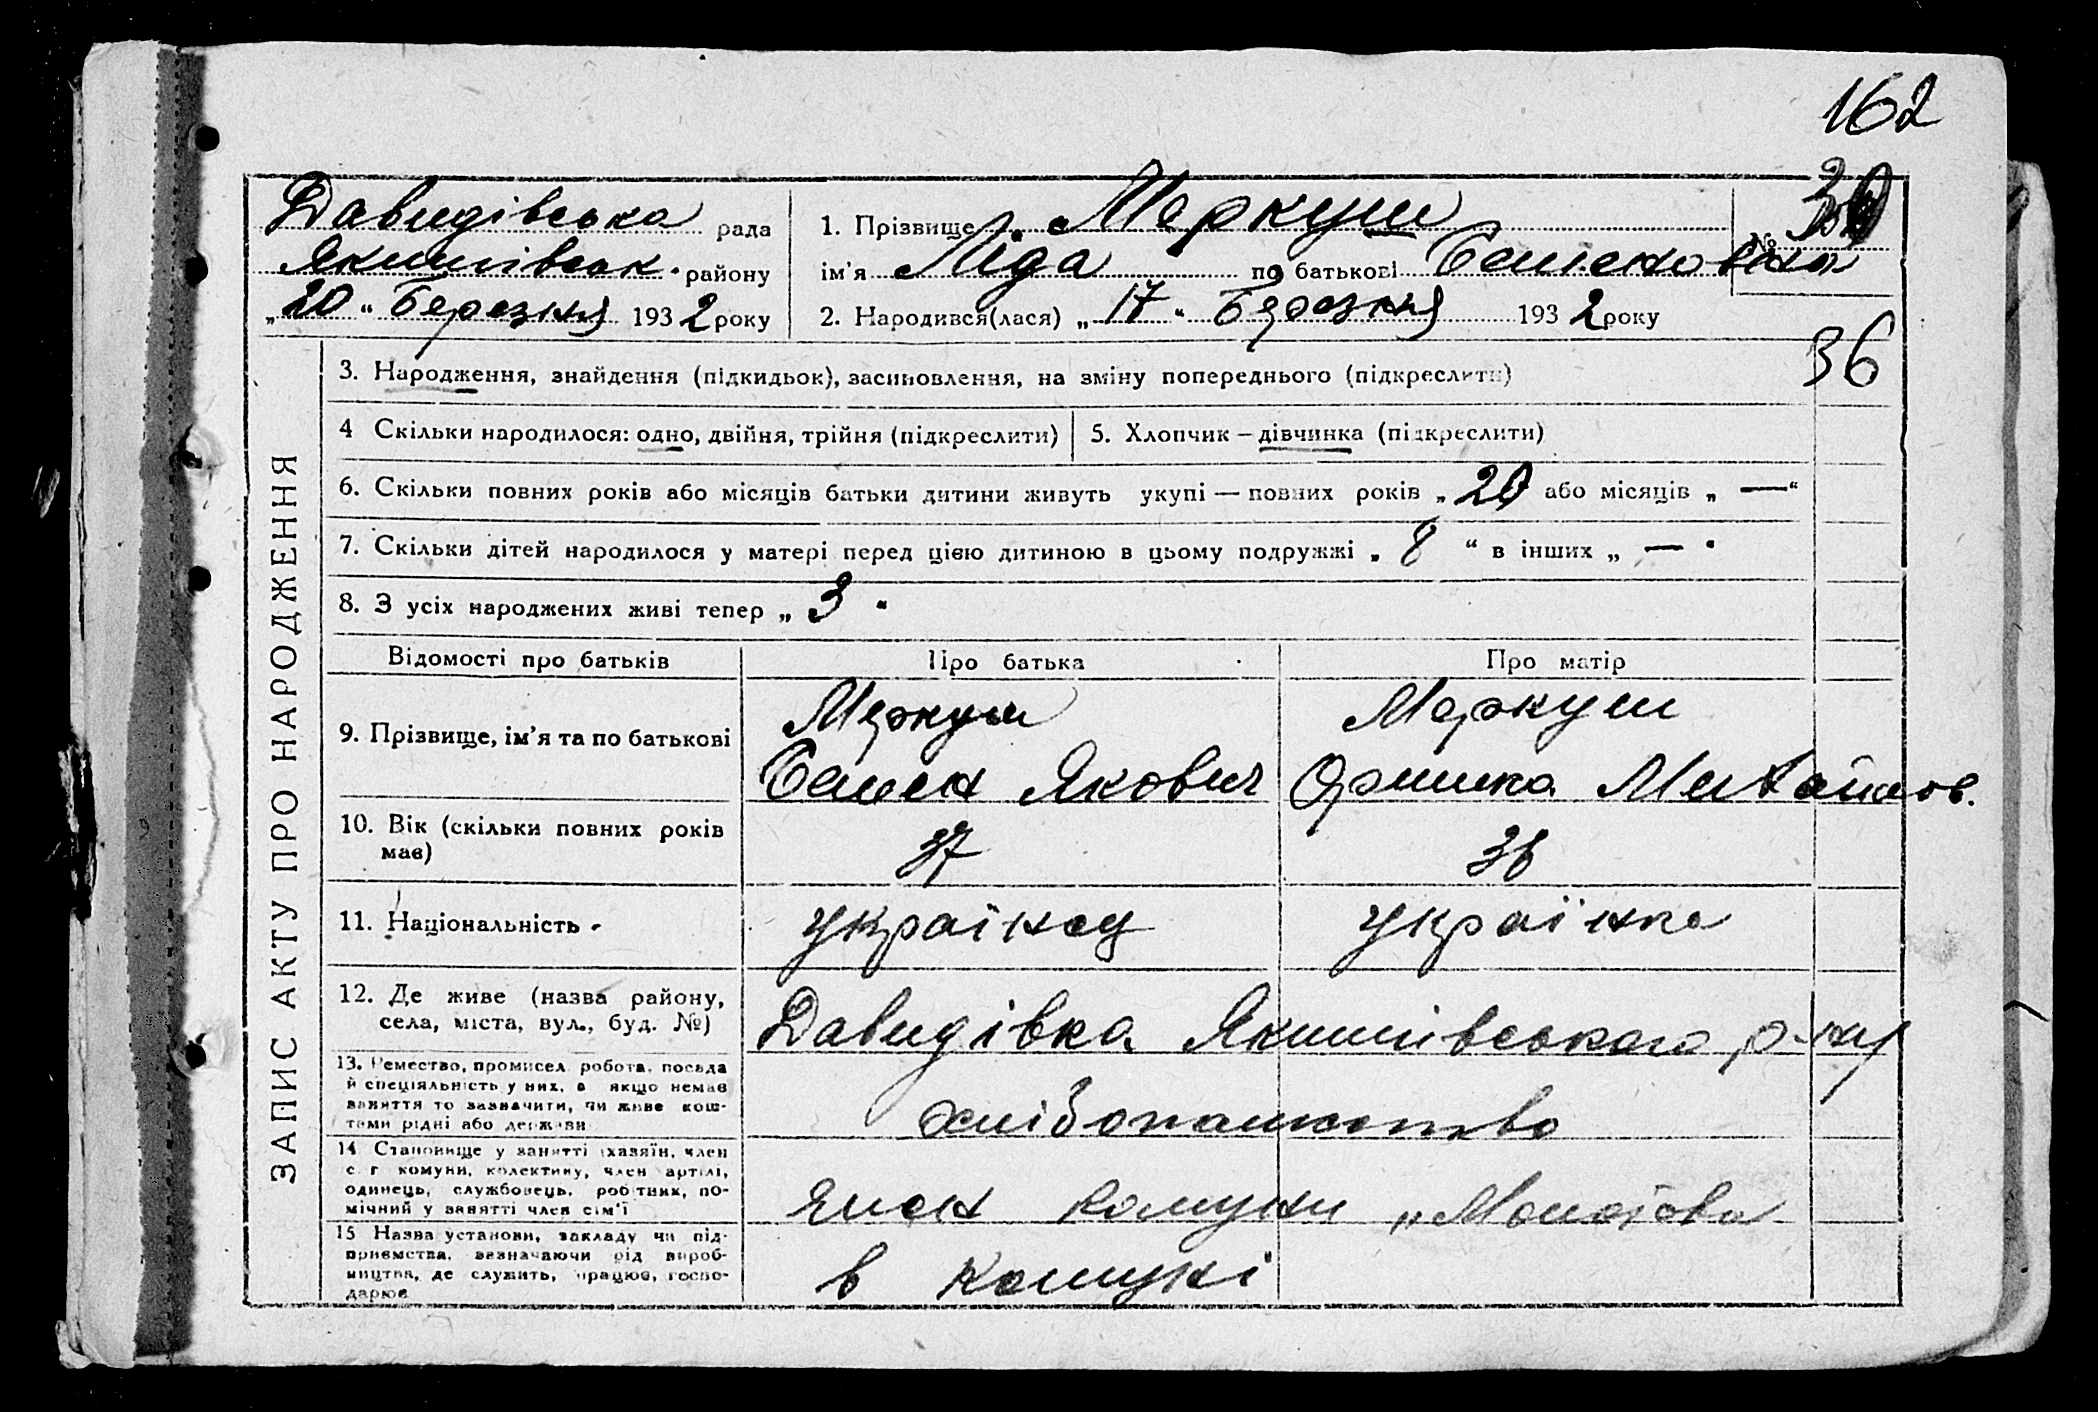 162
Давидівська рада
Якимівськ. району
„20“ Березня 1932 року
1. Прізвище Меркуш
№ 36
ім’я Ліда по батькові Семеновна
2. Народився(лася) „17“ Березня 1932 року
36
ЗАПИС АКТУ ПРО НАРОДЖЕННЯ
3. Народження, знайдення (підкидьок), засиновлення, на зміну попереднього (підкреслити)
4 Скільки народилося: одно, двійня, трійня (підкреслити)
5. Хлопчик – дівчинка (підкреслити)
6. Скільки повних років або місяців батьки дитини живуть укупі — повних років „20 або місяців „ —“
7. Скільки дітей народилося у матері перед цією дитиною в цьому подружжі „ 8 “ в інших „ — “
8. З усіх народжених живі тепер „ 3 “
Відомості про батьків Про батька Про матір
9. Прізвище, ім’я та по батькові
Меркуш
Семен Якович
Меркуш
Оришка Михайлов.
10. Вік (скільки повних років
мав)
37
36
11. Національність
українец
українка
12. Де живе (назва району,
села, міста, вул., буд. №)
Давидівка Якимівського р-ну
13. Ремество, промисел робота, посада
й спеціяльність у них, а якщо немає
заняття то зазначити, чи живе кош-
тами рідні або держави
хлібопашество
14 Становище у занятті (хазяїн, член
с. г комуни, колективу, член артілі,
одинець, службовець, робітник, по-
мічний у занятті член сім’ї
член комуни „
15 Назва установи, закладу чи під-
приємства, зазначаючи рід вироб-
ництва, де служить, працює, госпо-
дарює
в комуні